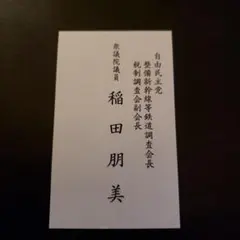 自由民主党
整備新幹線等鉄道調査会長
税制調査会副会長
衆議院議員
稲田朋美